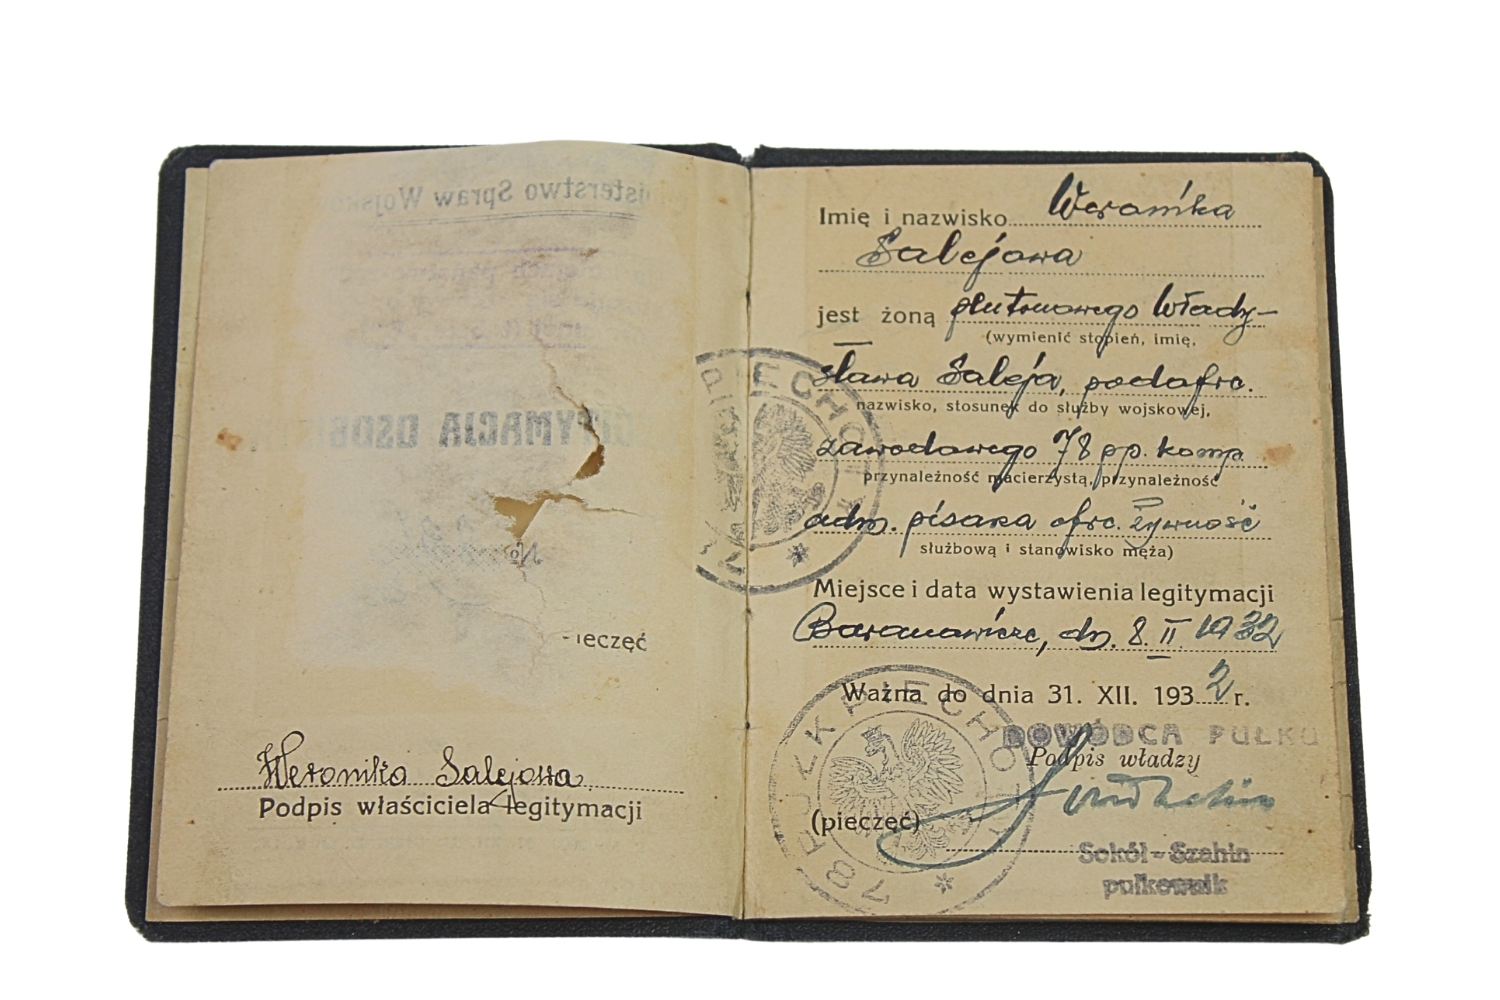 -ieczęć
Weronika Salejowa
Podpis właściciela legitymacji
Imię i nazwisko Weronika
Salejowa
jest żoną plutonowego Włady-
(wymienić stopień, imię,
sława Saleja, podofic.
nazwisko, stosunek do służby wojskowej,
zawodowego 78 pp. komp.
przynależność macierzystą, przynależność
adm. pisarza ofic. żywność
służbową i stanowisko męża)
Miejsce i data wystawienia legitymacji
Baranowicze, dn. 8. II. 1932
Ważna do dnia 31. XII. 1932 r.
DOWÓDCA PUŁKU
Podpis władzy
(pieczęć)
Sokół-Szahin
pułkownik
78 PUŁK PIECHOTY
Ministerstwo Spraw Wojskow
LEGITYMACJA OSOBI
№